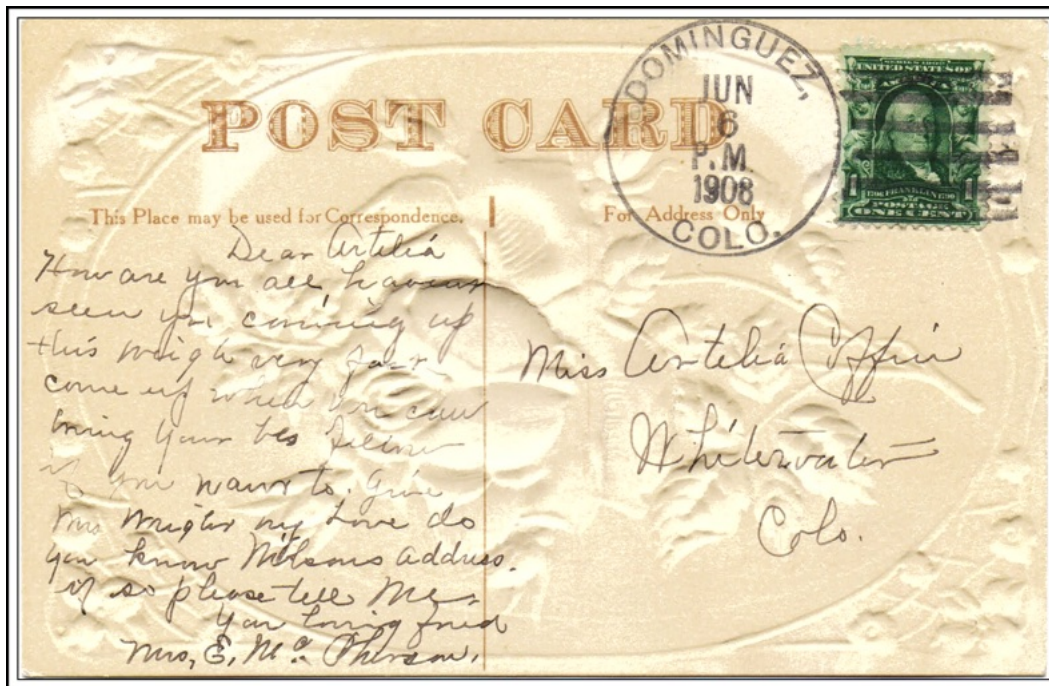 POST CARD
DOMINGUEZ,
JUN
6
P.M.
1908
COLO.
SERIES 1902
UNITED STATES OF
1706 FRANKLIN 1790
1 1
POSTAGE
ONE CENT
This Place may be used for Correspondence.
For Address Only
Dear Artelia
How are you all havent
seen you coming up
this weigh very fast
come up when you can
bring your bes fellow
if you want to. Give
Mrs Wright my Love do
you know Nelsons address.
if so please tell Me.
Your loving frend
Mrs, E. Mc Pherson.
Miss Artelia Coffin
Whitewater
Colo.